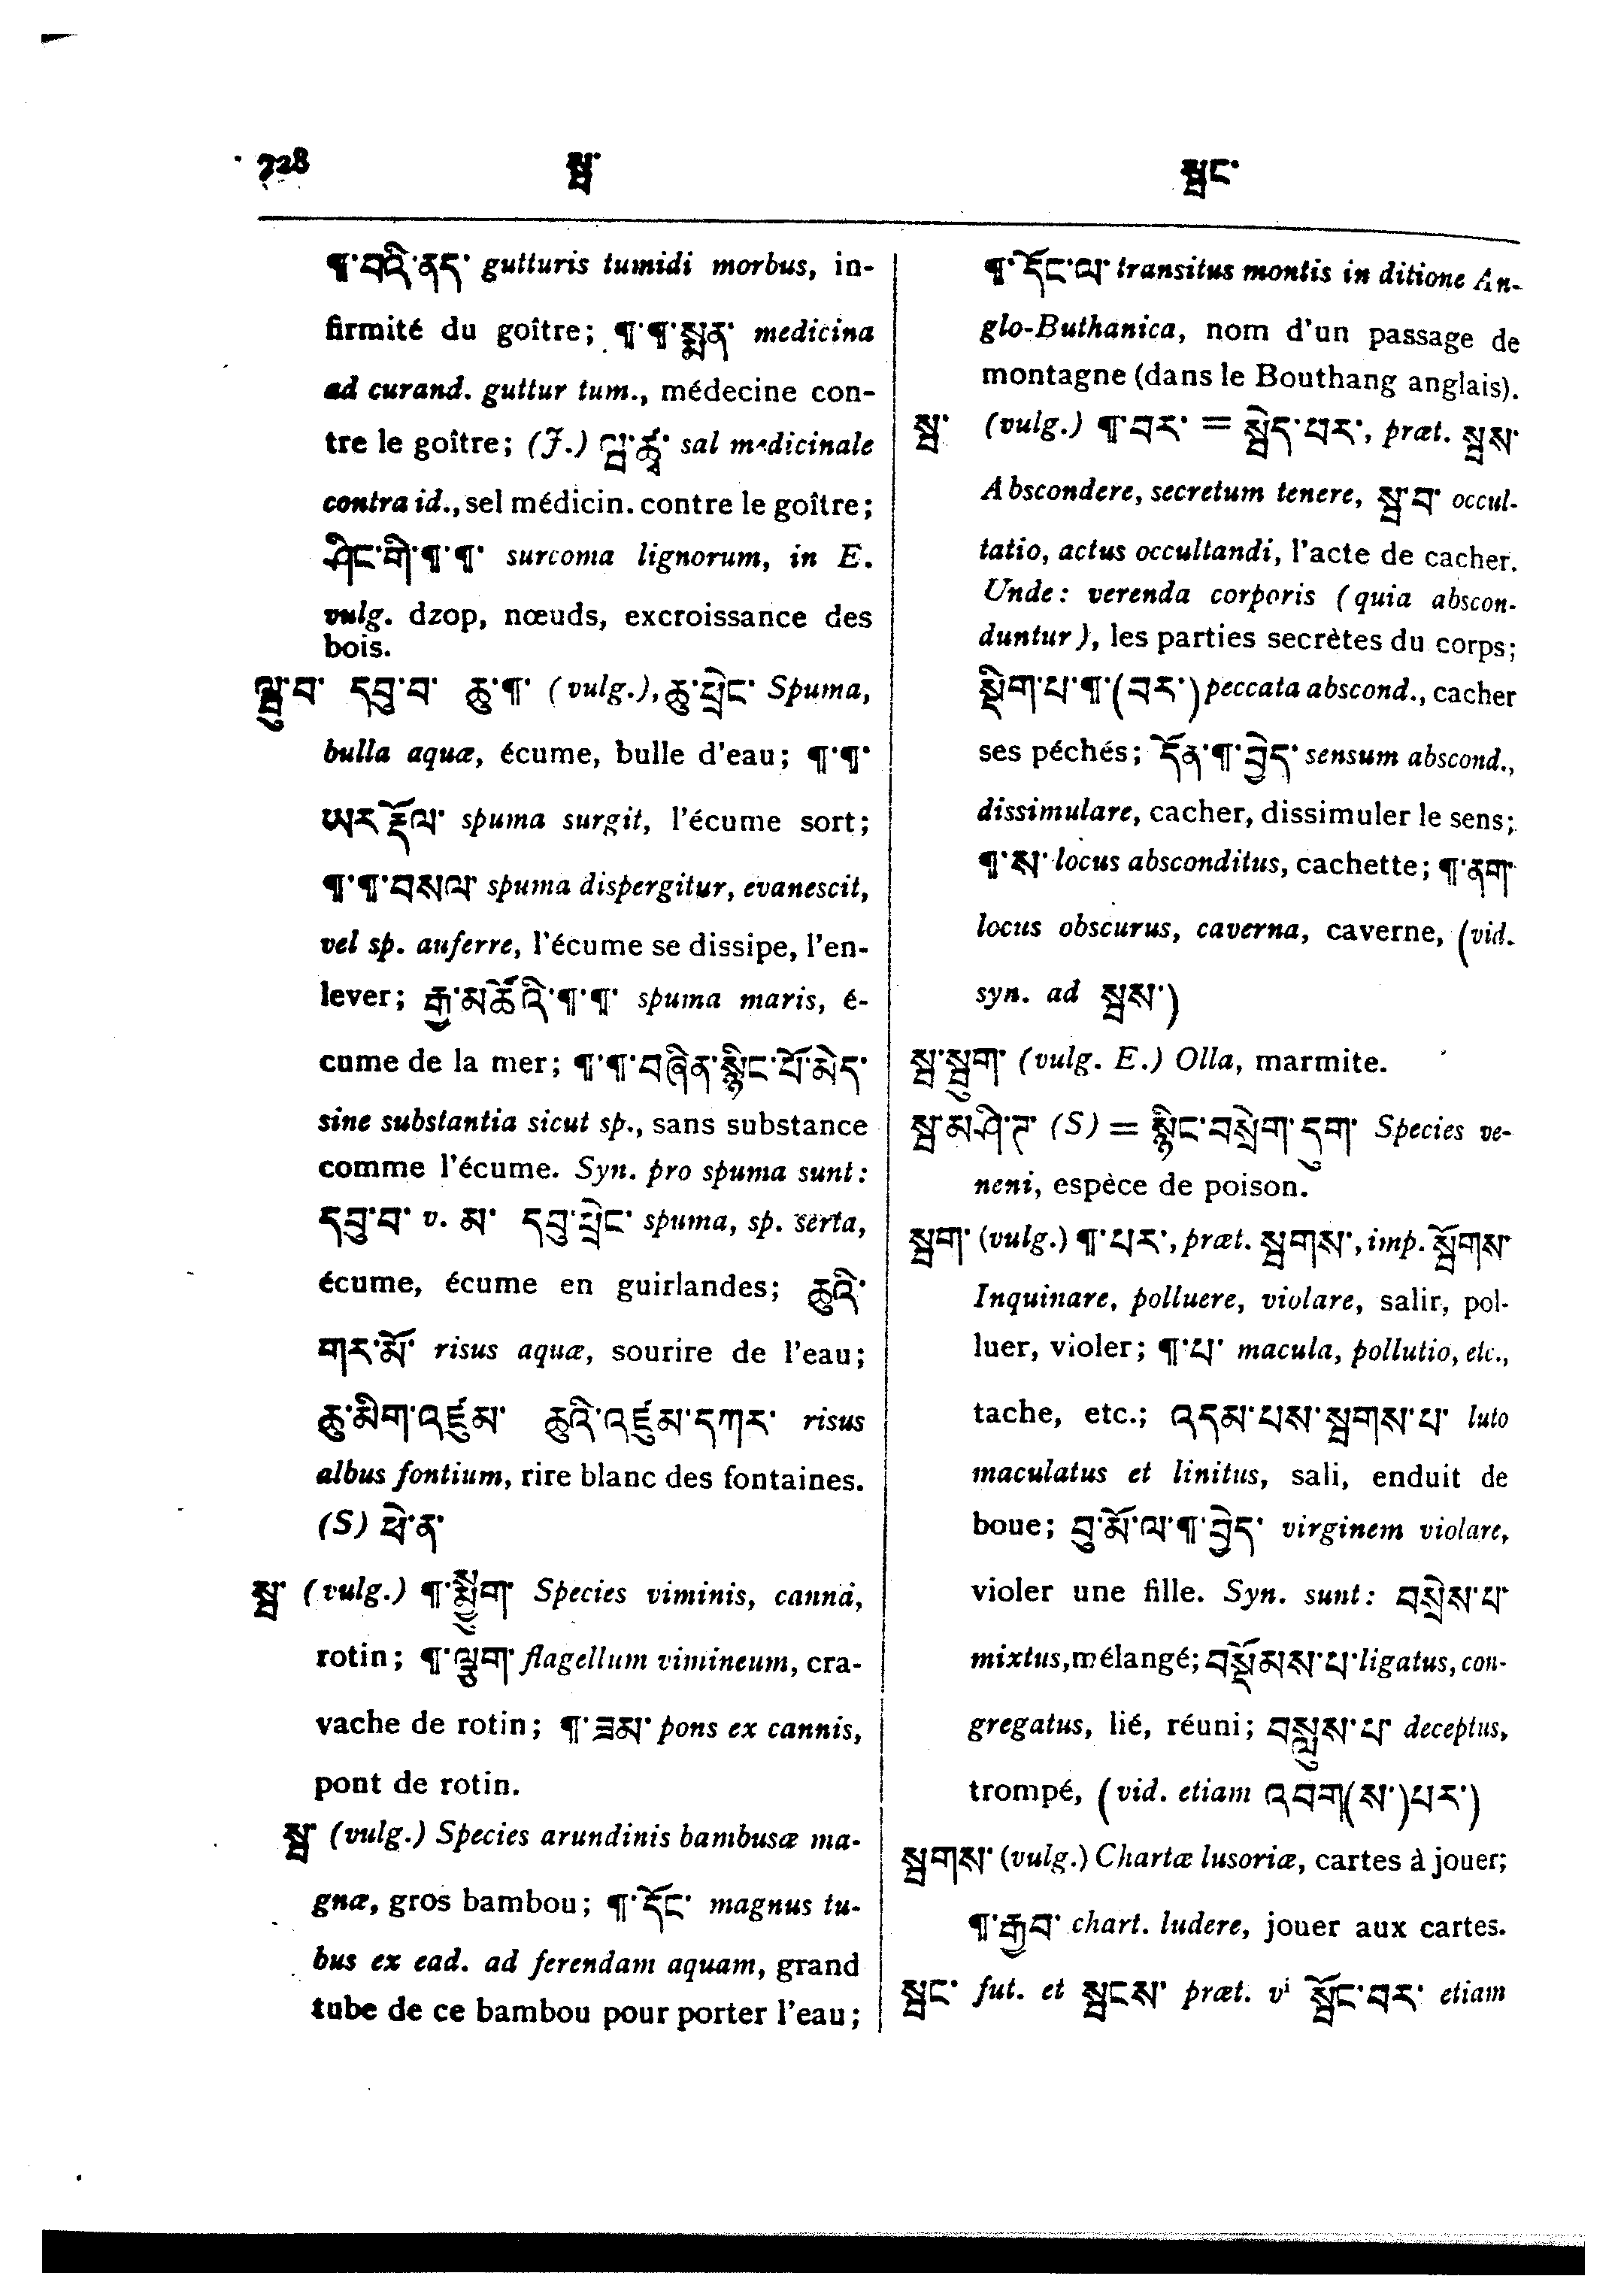 728 སྦ་ སྦང་
¶་བའི་ནད་ gutturis tumidi morbus, in-
firmité du goître; ¶་¶་སྨན་ medicina
ad curand. guttur tum., médecine con-
tre le goître; (J.) ལྦ་ཚྭ་ sal medicinale
contra id., sel médicin. contre le goître;
ཤིང་གི་¶་¶་ surcoma lignorum, in E.
vulg. dzop, nœuds, excroissance des
bois.
ལྦུ་བ་ དབུ་བ་ ཆུ་¶་ (vulg.), ཆུ་ཕྲེང་ Spuma,
bulla aquæ, écume, bulle d'eau; ¶་¶་
ཡར་རྡོལ་ spuma surgit, l'écume sort;
¶་¶་བསལ་ spuma dispergitur, evanescit,
vel sp. auferre, l'écume se dissipe, l'en-
lever; རྒྱ་མཚོའི་¶་¶་ spuma maris, é-
cume de la mer; ¶་¶་བཞིན་སྙིང་པོ་མེད་
sine substantia sicut sp., sans substance
comme l'écume. Syn. pro spuma sunt:
དབུ་བ་ v. མ་ དབུ་ཕྲེང་ spuma, sp. serta,
écume, écume en guirlandes; ཆུའི་
གར་མོ་ risus aquæ, sourire de l'eau;
ཆུ་མིག་འཛུམ་ ཆུའི་འཛུམ་དཀར་ risus
albus fontium, rire blanc des fontaines.
(S) ཕེ་ན་
སྦ་ (vulg.) ¶་སྨྱུག་ Species viminis, canna,
rotin; ¶་ལྕུག་ flagellum vimineum, cra-
vache de rotin; ¶་ཟམ་ pons ex cannis,
pont de rotin.
སྦ་ (vulg.) Species arundinis bambusæ ma-
gnæ, gros bambou; ¶་དོང་ magnus tu-
bus ex ead. ad ferendam aquam, grand
tube de ce bambou pour porter l'eau;
¶་དོང་ལ་ transitus montis in ditione An-
glo-Buthanica, nom d'un passage de
montagne (dans le Bouthang anglais).
སྦ་ (vulg.) ¶་བར་ = སྦེད་པར་, præt. སྦས་
Abscondere, secretum tenere, སྦ་བ་ occul-
tatio, actus occultandi, l'acte de cacher.
Unde: verenda corporis (quia abscon-
duntur), les parties secrètes du corps;
སྡིག་པ་¶་(བར་) peccata abscond., cacher
ses péchés; དོན་¶་བྱེད་ sensum abscond.,
dissimulare, cacher, dissimuler le sens;
¶་ས་ locus absconditus, cachette; ¶་ནག་
locus obscurus, caverna, caverne, (vid.
syn. ad སྦས་)
སྦ་སྦུག་ (vulg. E.) Olla, marmite.
སྦ་མ་ཤི་ཏ་ (S) = སྙིང་བསྲེག་དུག་ Species ve-
neni, espèce de poison.
སྦག་ (vulg.) ¶་པར་, præt. སྦགས་, imp. སྦོགས་
Inquinare, polluere, violare, salir, pol-
luer, violer; ¶་པ་ macula, pollutio, etc.,
tache, etc.; འདམ་པས་སྦགས་པ་ luto
maculatus et linitus, sali, enduit de
boue; བུ་མོ་ལ་¶་བྱེད་ virginem violare,
violer une fille. Syn. sunt: བསྲེས་པ་
mixtus, mélangé; བསྡོམས་པ་ ligatus, con-
gregatus, lié, réuni; བསླུས་པ་ deceptus,
trompé, (vid. etiam འབག(ས་)པར་)
སྦགས་ (vulg.) Chartæ lusoriæ, cartes à jouer;
¶་རྒྱབ་ chart. ludere, jouer aux cartes.
སྦང་ fut. et སྦངས་ præt. vi སྦོང་བར་ etiam